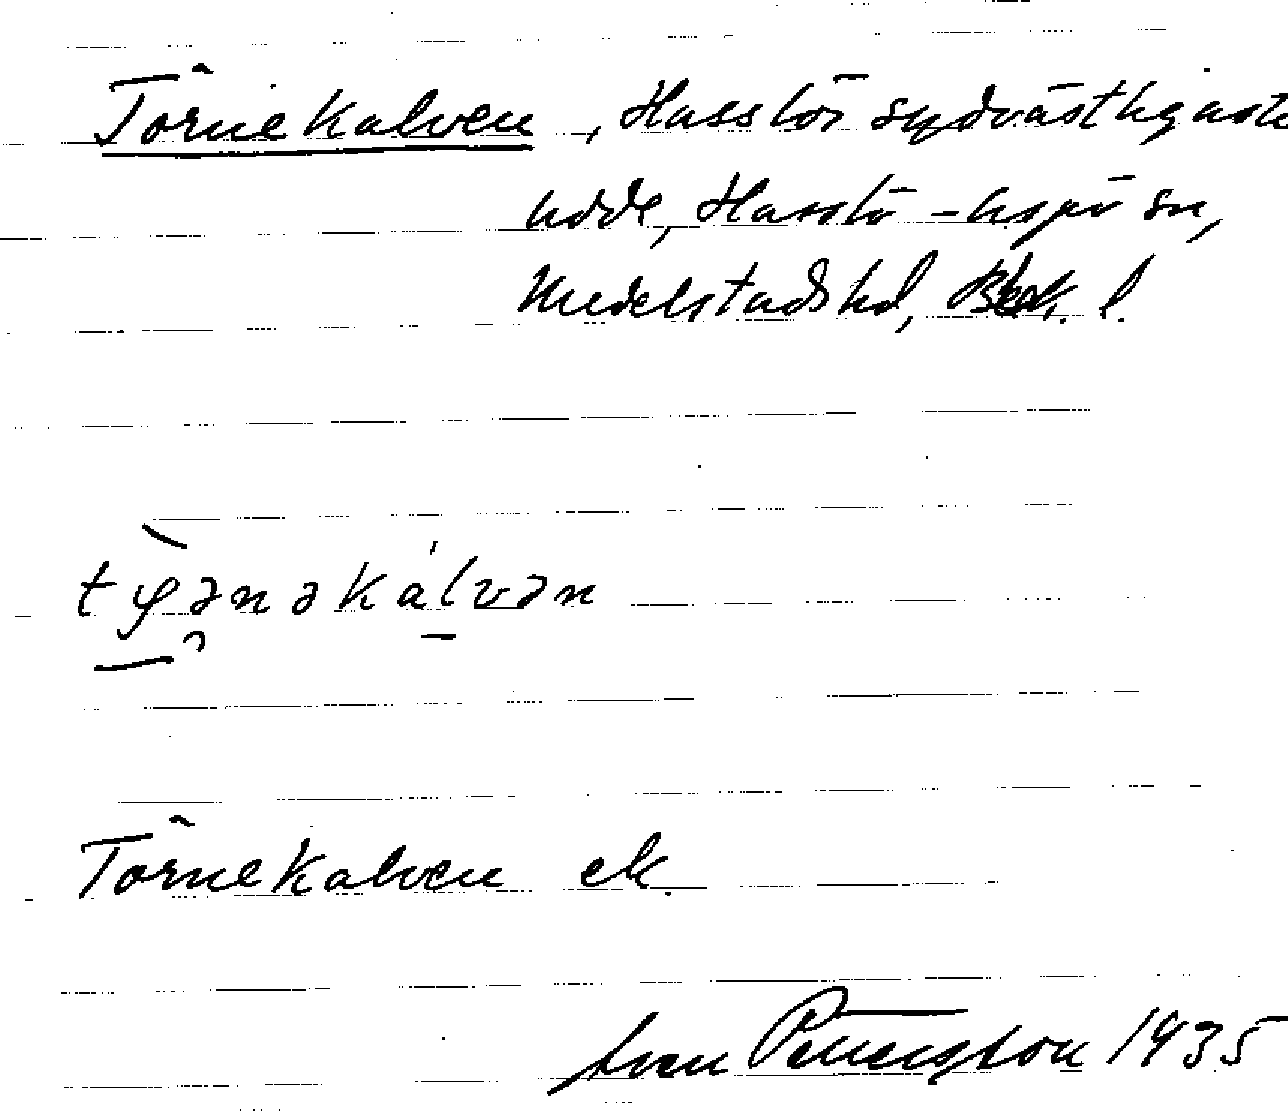 Törnekalven, Hasslös sydvästligaste
udde, Hasslö-Aspö sn,
Medelstads hd, Blek. l.
tỵ̀ənəkálvən
Törnekalven ek.
Sven Pettersson 1935